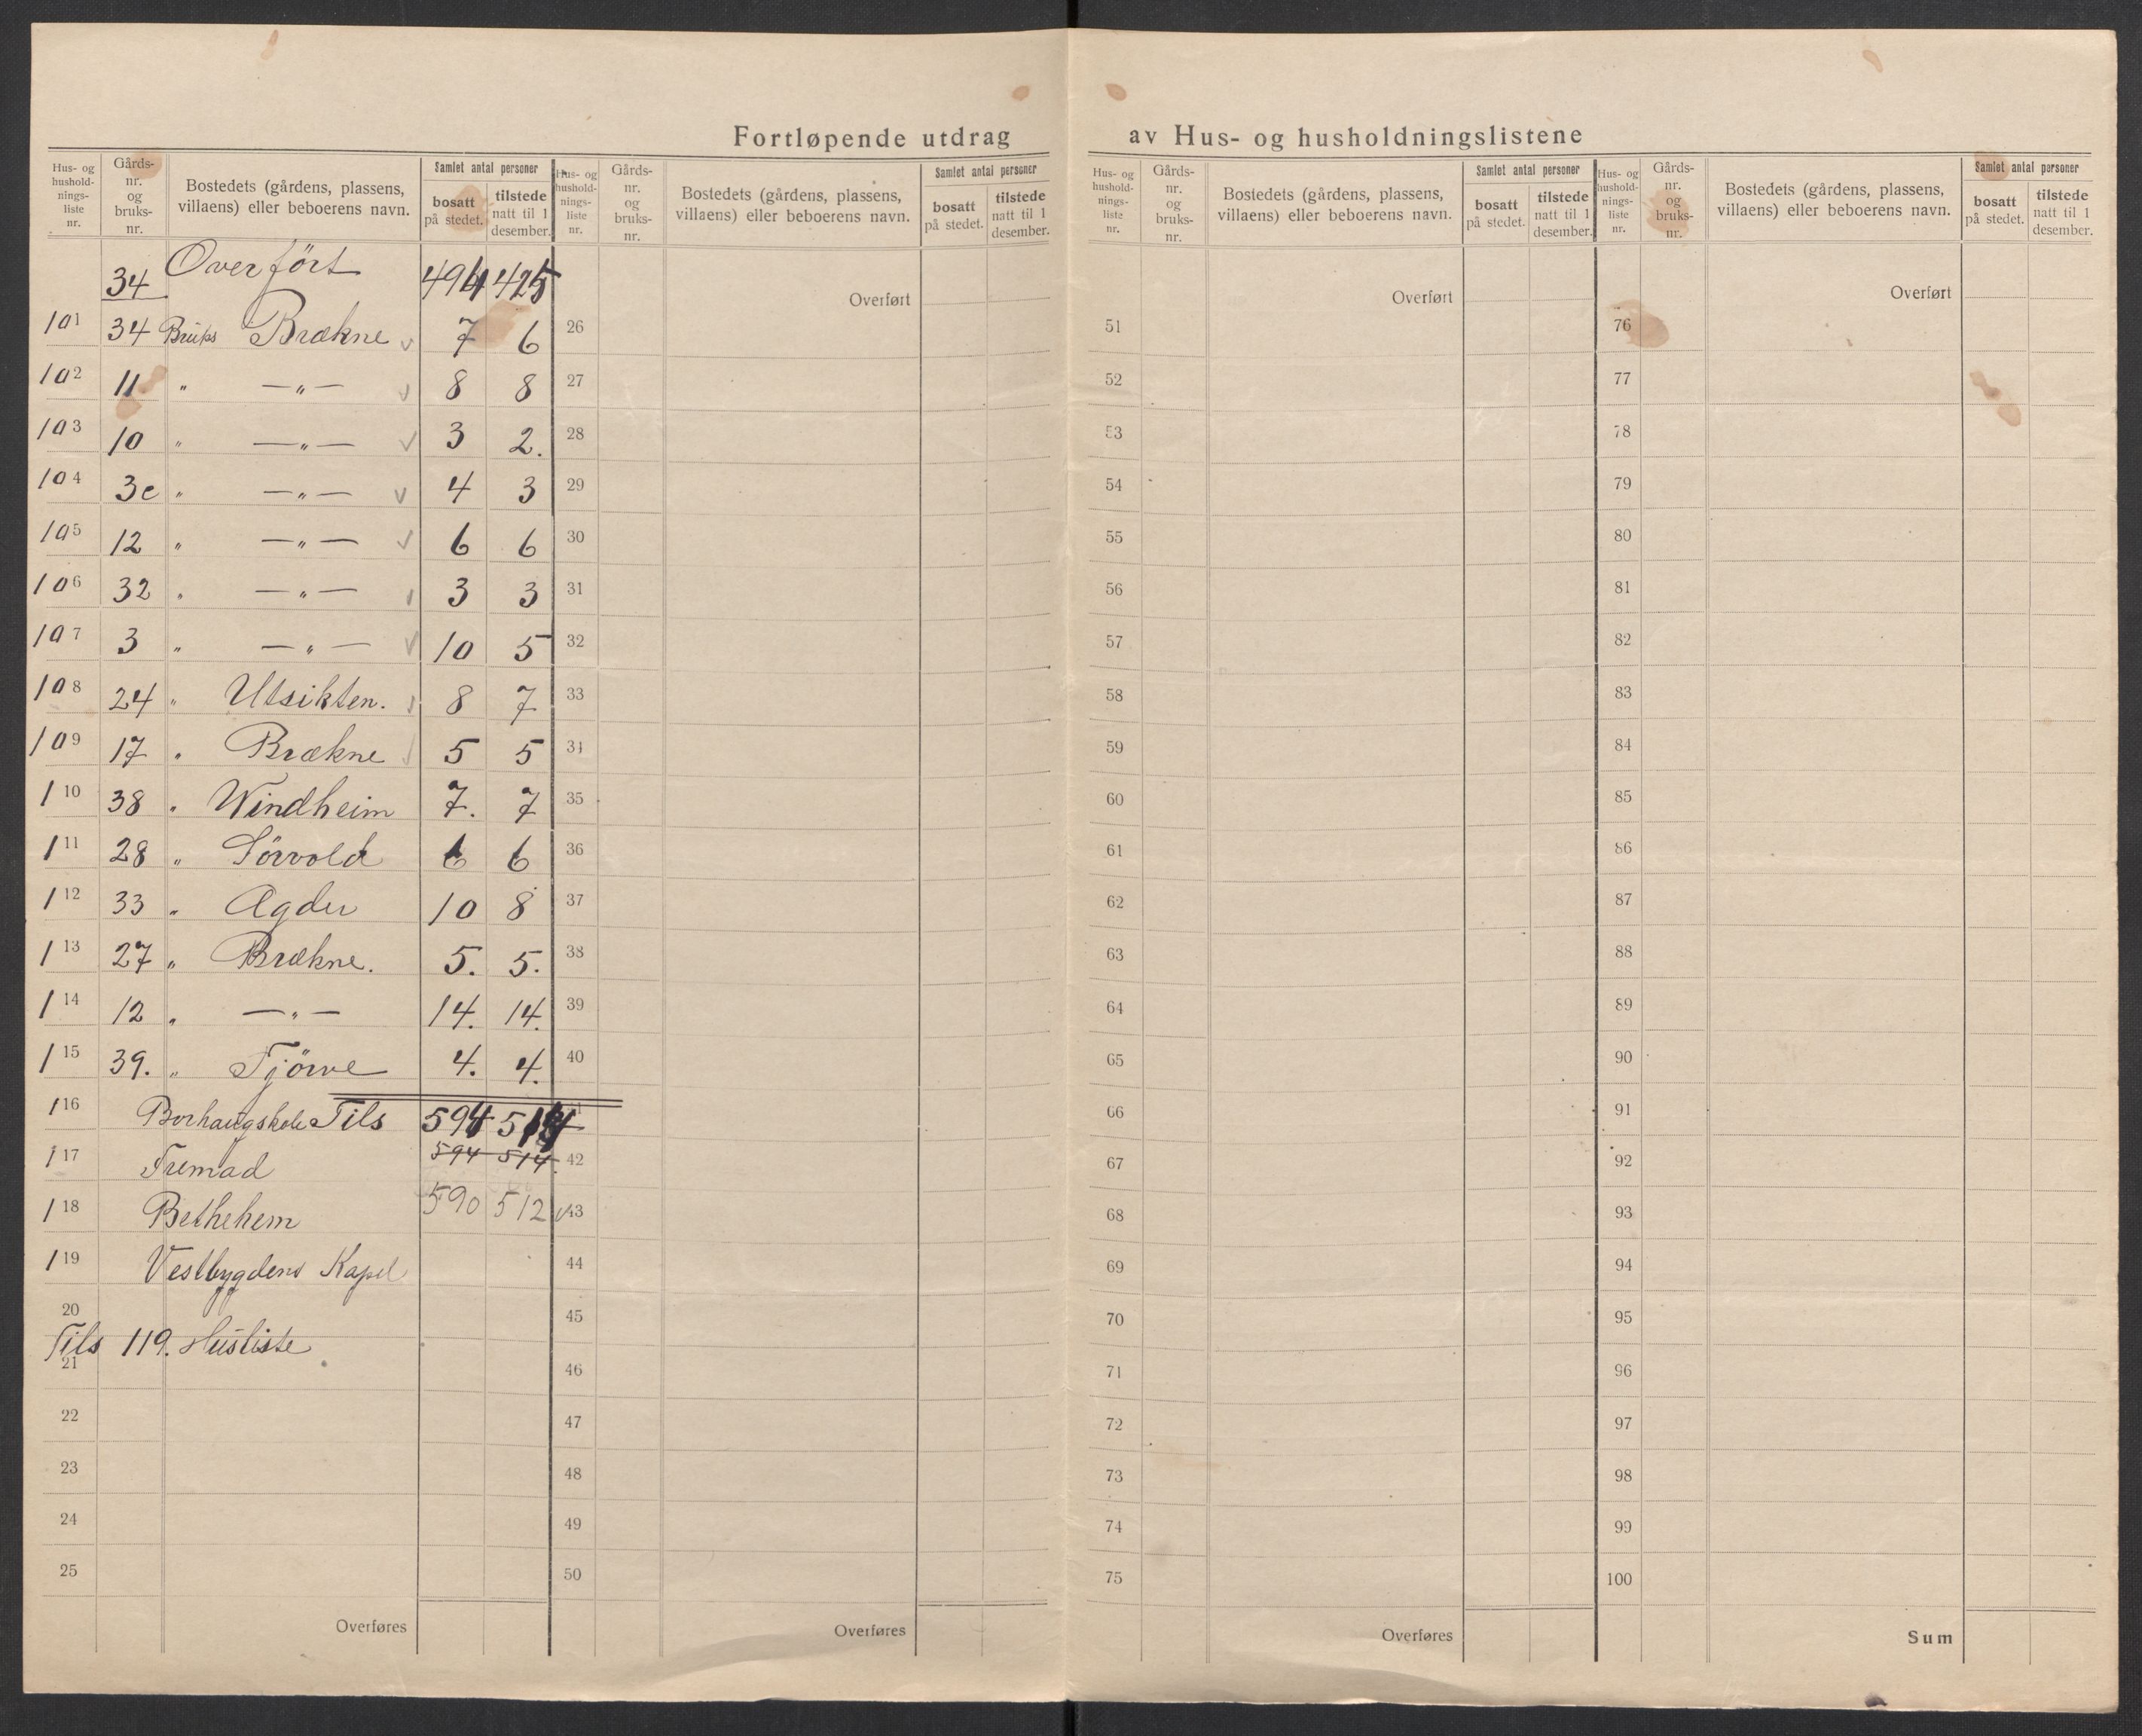 Fortløpende utdrag av Hus- og husholdningslistene
Hus- og hushold-nings-liste nr. Gårds-nr. og bruks-nr. Bostedets (gårdens, plassens, villaens) eller beboerens navn. Samlet antal personer bosatt på stedet. tilstede natt til 1 desember.
Hus- og hushold-nings-liste nr. Gårds-nr. og bruks-nr. Bostedets (gårdens, plassens, villaens) eller beboerens navn. Samlet antal personer bosatt på stedet. tilstede natt til 1 desember.
Hus- og hushold-nings-liste nr. Gårds-nr. og bruks-nr. Bostedets (gårdens, plassens, villaens) eller beboerens navn. Samlet antal personer bosatt på stedet. tilstede natt til 1 desember.
Hus- og hushold-nings-liste nr. Gårds-nr. og bruks-nr. Bostedets (gårdens, plassens, villaens) eller beboerens navn. Samlet antal personer bosatt på stedet. tilstede natt til 1 desember.
34 Overført 494 425 Overført Overført Overført
101 34 Bruks Brækne 7 6 26 51 76
102 11 " —"— 8 8 27 52 77
103 10 " —"— 3 2. 28 53 78
104 3c " —"— 4 3 29 54 79
105 12 " —"— 6 6 30 55 80
106 32 " —"— 3 3 31 56 81
107 3 " —"— 10 5 32 57 82
108 24 " Utsikten. 8 7 33 58 83
109 17 " Brækne 5 5 34 59 84
110 38 " Windheim 7. 7 35 60 85
111 28 " Sørvold 6 6 36 61 86
112 33 " Agder 10 8 37 62 87
113 27 " Brækne. 5. 5. 38 63 88
114 12 " —"— 14. 14. 39 64 89
115 39. " Tjörve 4. 4. 40 65 90
116 Borhaugskole Tils 594 514 66 91
117 Fremad 594 514 42 67 92
118 Bethehem 590 512 43 68 93
119 Vestbygdens Kapel 44 69 94
20 45 70 95
Tils 119. Husliste
21 46 71 96
22 47 72 97
23 48 73 98
24 49 74 99
25 50 75 100
Overføres Overføres Overføres Sum